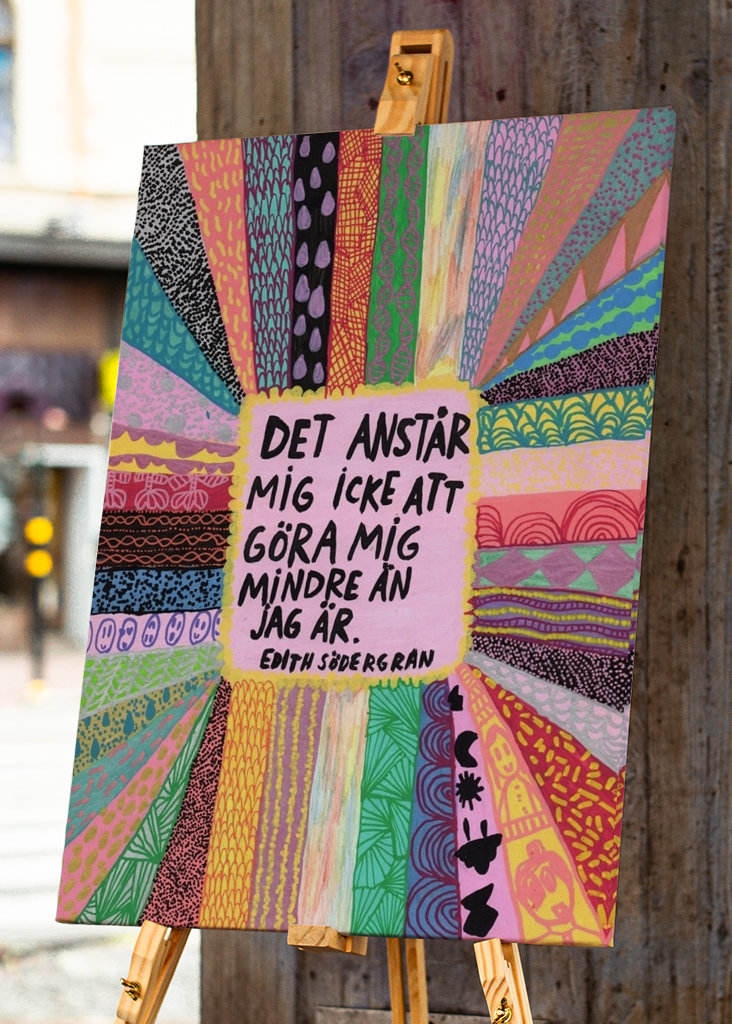 DET ANSTÅR
MIG ICKE ATT
GÖRA MIG
MINDRE ÄN
JAG ÄR.
EDITH SÖDERGRAN